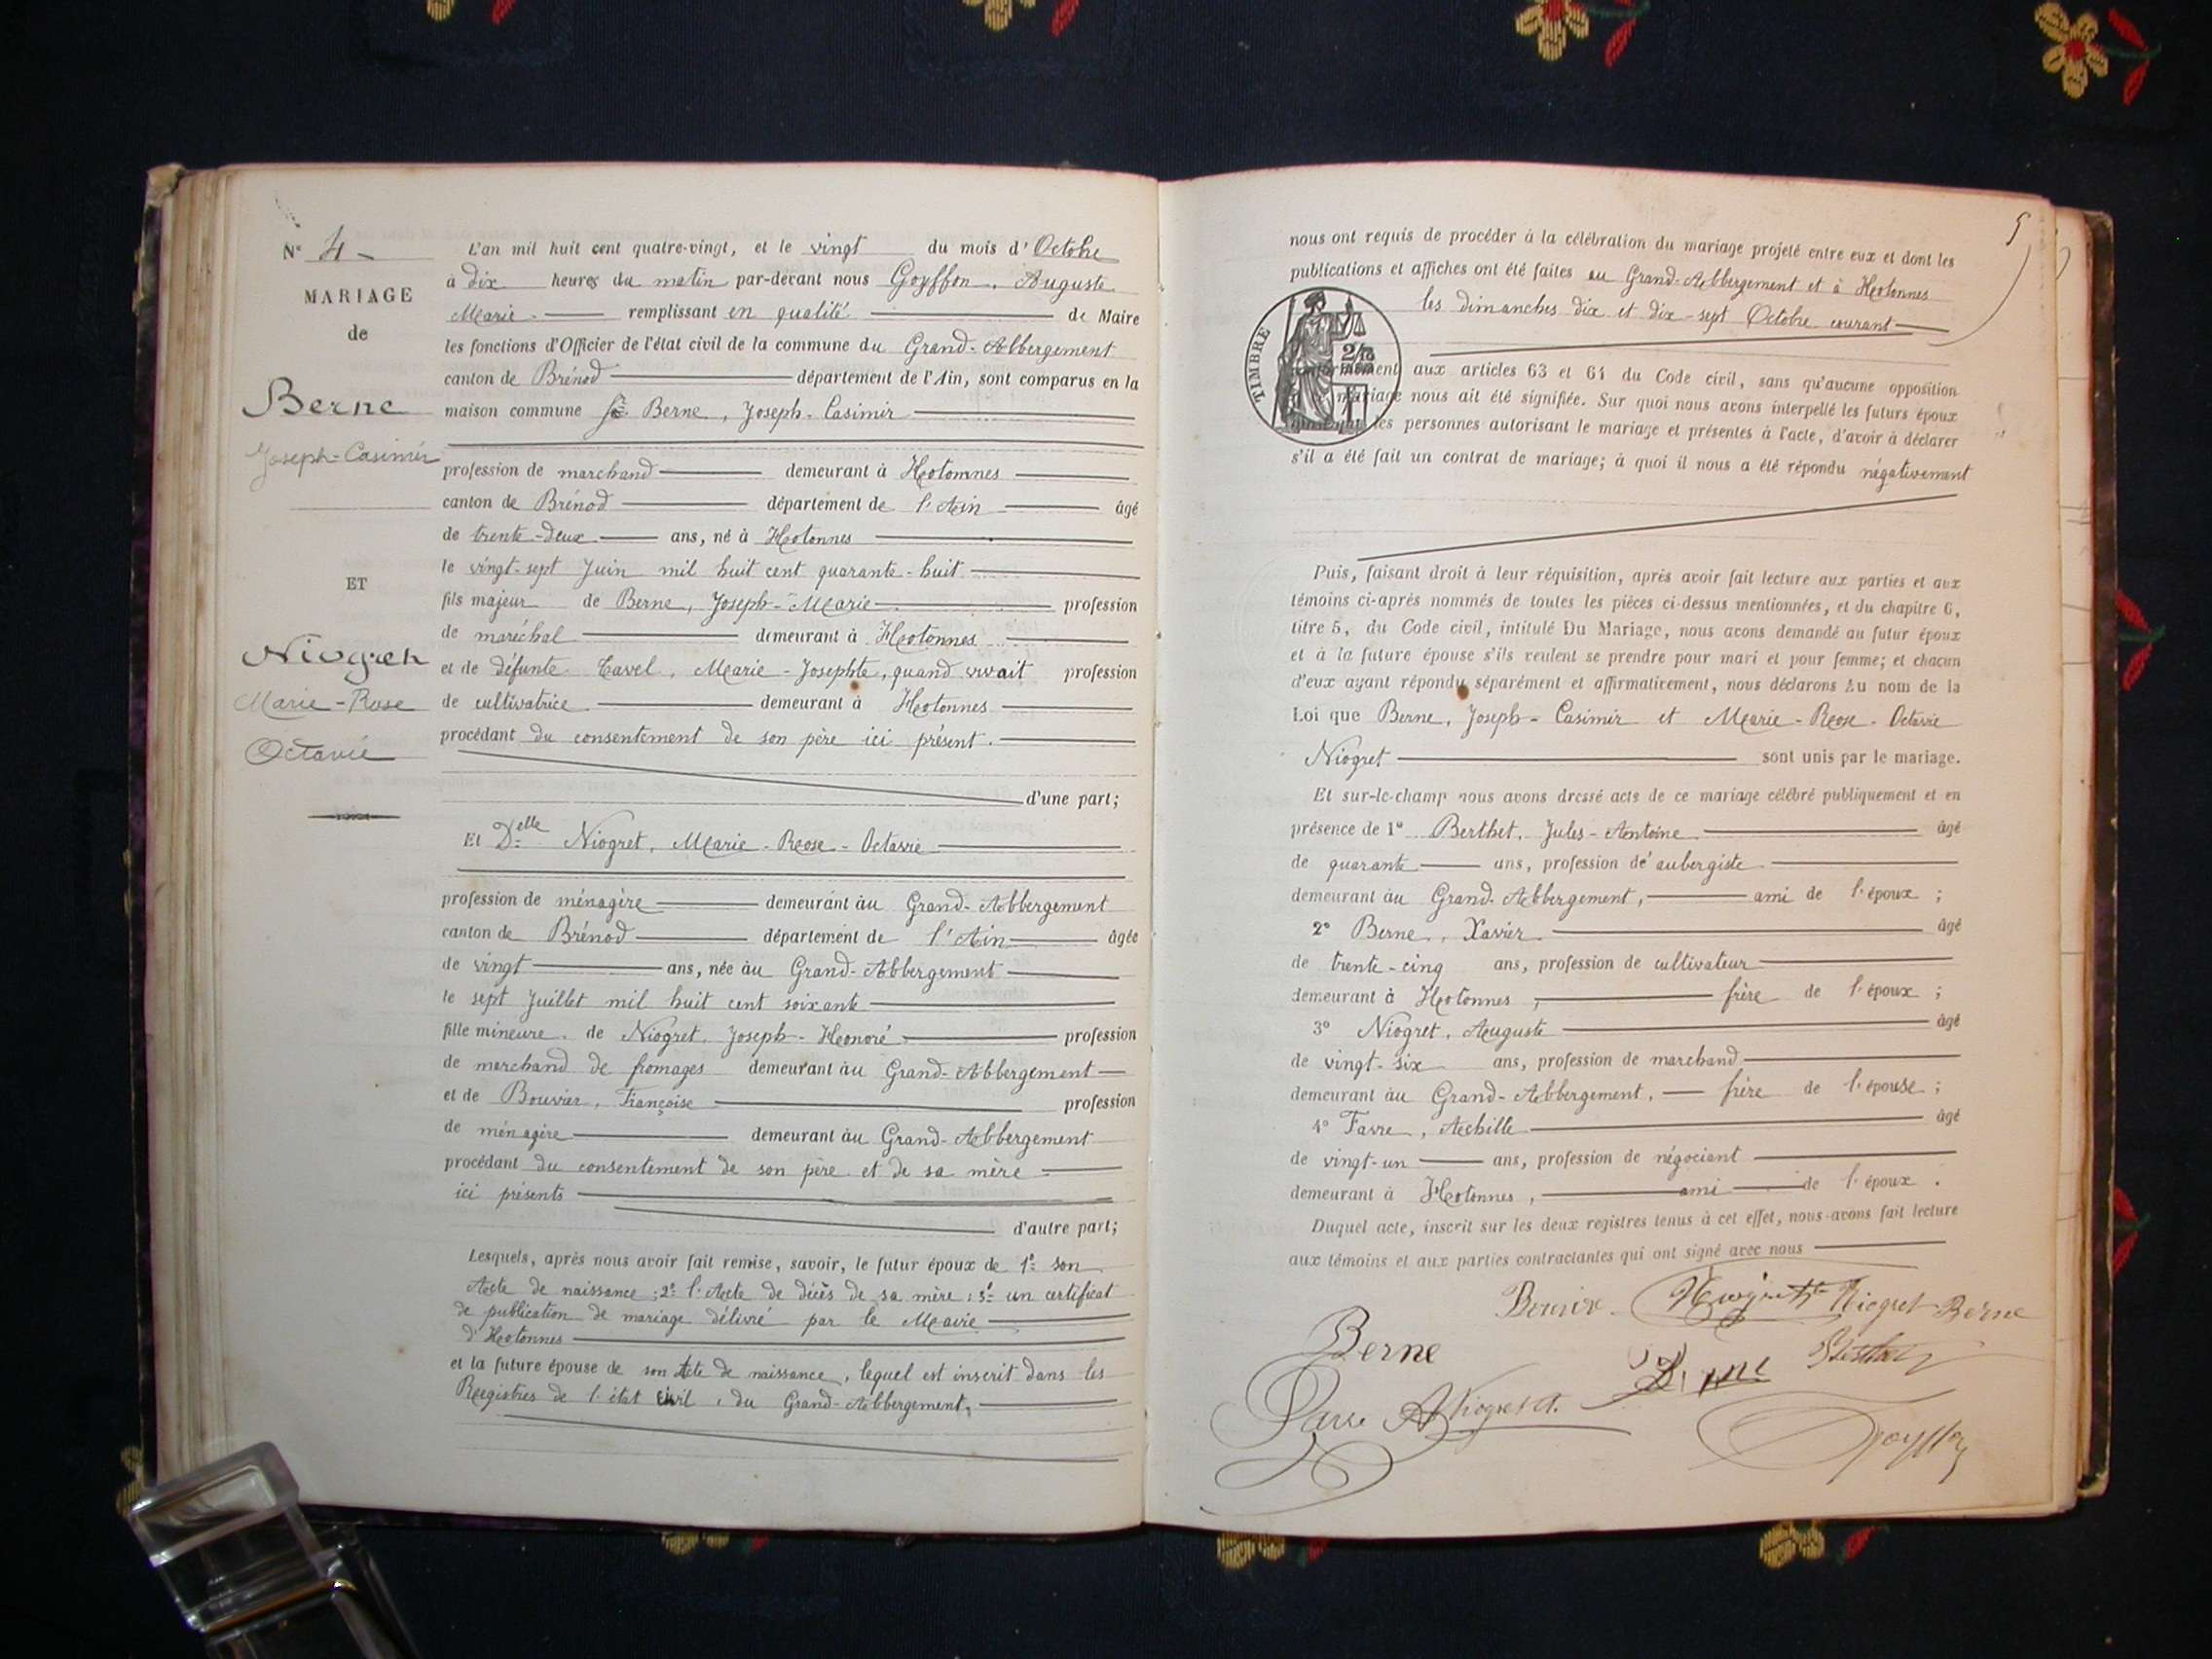 N° 4
MARIAGE
de
Berne
Joseph-Casimir
ET
Niogret
Marie-Rose
Octavie
L'an mil huit cent quatre-vingt, et le vingt du mois d'Octobre
à dix heures du matin par-devant nous Goyffon, Auguste
Marie remplissant en qualité de Maire
les fonctions d'Officier de l'état civil de la commune du Grand-Abbergement
canton de Brénod département de l'Ain, sont comparus en la
maison commune Berne, Joseph-Casimir
profession de marchand demeurant à Hotonnes
canton de Brénod département de l'Ain âgé
de trente-deux ans, né à Hotonnes
le vingt-sept Juin mil huit cent quarante-huit
fils majeur de Berne, Joseph-Marie profession
de maréchal demeurant à Hotonnes
et de défunte Tavel, Marie-Josephte, quand vivait profession
de cultivatrice demeurant à Hotonnes
procédant du consentement de son père ici présent.
d'une part;
Et Delle Niogret, Marie-Rose-Octavie
profession de ménagère demeurant au Grand-Abbergement
canton de Brénod département de l'Ain âgée
de vingt ans, née au Grand-Abbergement
le sept Juillet mil huit cent soixante
fille mineure de Niogret, Joseph-Honoré profession
de marchand de fromages demeurant au Grand-Abbergement
et de Bouvier, Françoise profession
de ménagère demeurant au Grand-Abbergement
procédant du consentement de son père et de sa mère
ici présents
d'autre part;
Lesquels, après nous avoir fait remise, savoir, le futur époux de 1° son
Acte de naissance; 2° l'Acte de décès de sa mère; 3° un certificat
de publication de mariage délivré par le Mairie
d'Hotonnes
et la future épouse de son Acte de naissance, lequel est inscrit dans les
Registres de l'état civil, du Grand-Abbergement,
5
nous ont requis de procéder à la célébration du mariage projeté entre eux et dont les
publications et affiches ont été faites au Grand-Abbergement et à Hotonnes
les dimanches dix et dix-sept Octobre courant
TIMBRE
conformément aux articles 63 et 64 du Code civil, sans qu'aucune opposition
mariage nous ait été signifiée. Sur quoi nous avons interpellé les futurs époux
les personnes autorisant le mariage et présentes à l'acte, d'avoir à déclarer
s'il a été fait un contrat de mariage; à quoi il nous a été répondu négativement
Puis, faisant droit à leur réquisition, après avoir fait lecture aux parties et aux
témoins ci-après nommés de toutes les pièces ci-dessus mentionnées, et du chapitre 6,
titre 5, du Code civil, intitulé Du Mariage, nous avons demandé au futur époux
et à la future épouse s'ils veulent se prendre pour mari et pour femme; et chacun
d'eux ayant répondu séparément et affirmativement, nous déclarons Au nom de la
Loi que Berne, Joseph-Casimir et Marie-Rose-Octavie
Niogret sont unis par le mariage.
Et sur-le-champ nous avons dressé acte de ce mariage célébré publiquement et en
présence de 1° Berthet, Jules-Antoine âgé
de quarante ans, profession d'aubergiste
demeurant au Grand-Abbergement, ami de l'époux;
2° Berne, Xavier âgé
de trente-cinq ans, profession de cultivateur
demeurant à Hotonnes, frère de l'époux;
3° Niogret, Auguste âgé
de vingt-six ans, profession de marchand
demeurant au Grand-Abbergement, frère de l'épouse;
4° Favre, Achille âgé
de vingt-un ans, profession de négociant
demeurant à Hotonnes, ami de l'époux.
Duquel acte, inscrit sur les deux registres tenus à cet effet, nous avons fait lecture
aux témoins et aux parties contractantes qui ont signé avec nous
Niogret Berne
Berne
Niogret A.
Goyffon